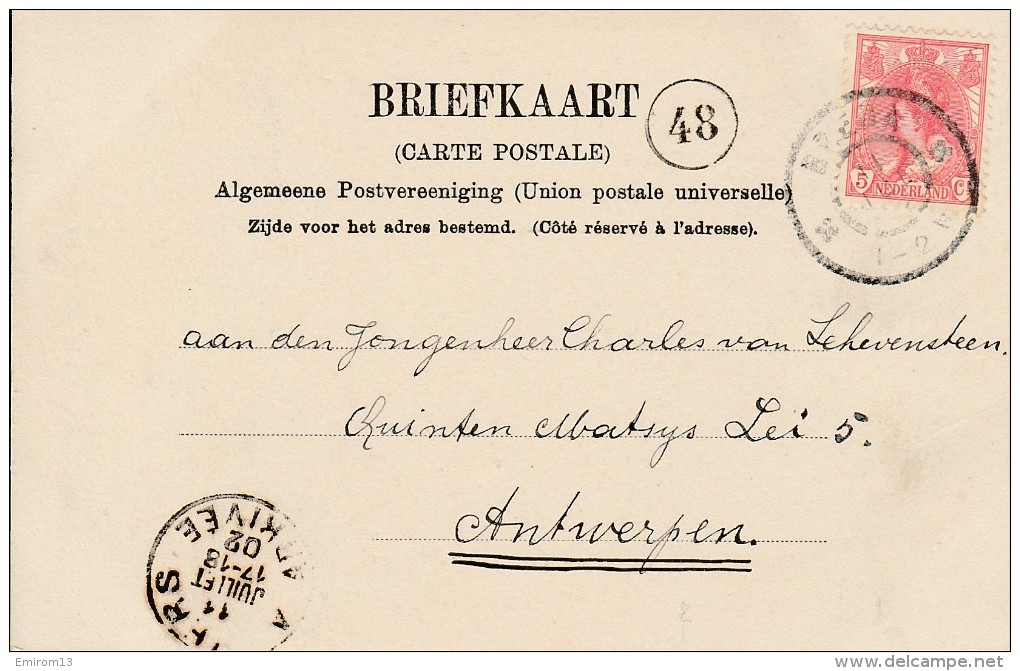 BRIEFKAART
48
(CARTE POSTALE)
Algemeene Postvereeniging (Union postale universelle)
Zijde voor het adres bestemd. (Côté réservé à l'adresse).
5 NEDERLAND C
BREDA
1-2 N
aan den Jongenheer Charles van Schevensteen.
Quinten Matsys Lei 5.
Antwerpen.
ARRIVEE
11
JUILLET
17-18
02
Emirom13
delcampe.net